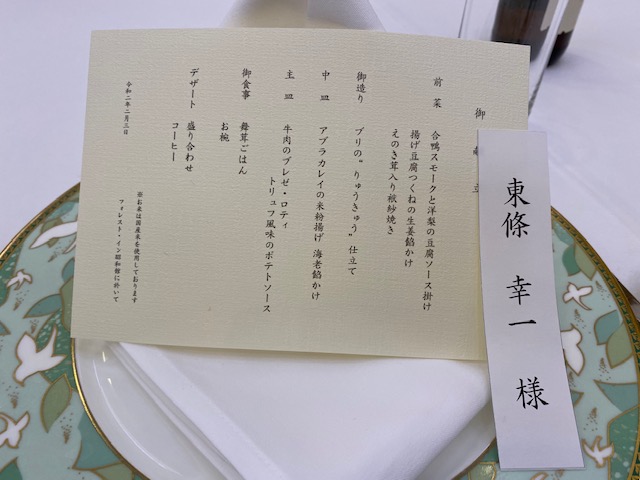 御献立
前菜
合鴨スモークと洋梨の豆腐ソース掛け
揚げ豆腐つくねの生姜餡かけ
えのき茸入り袱紗焼き
御造り
ブリの〝りゅうきゅう〟仕立て
中皿
アブラカレイの米粉揚げ 海老餡かけ
主皿
牛肉のブレゼ・ロティ
トリュフ風味のポテトソース
御食事
舞茸ごはん
お椀
デザート
盛り合わせ
コーヒー
令和二年二月三日
※お米は国産米を使用しております
フォレスト・イン昭和館に於いて
東條 幸一 様